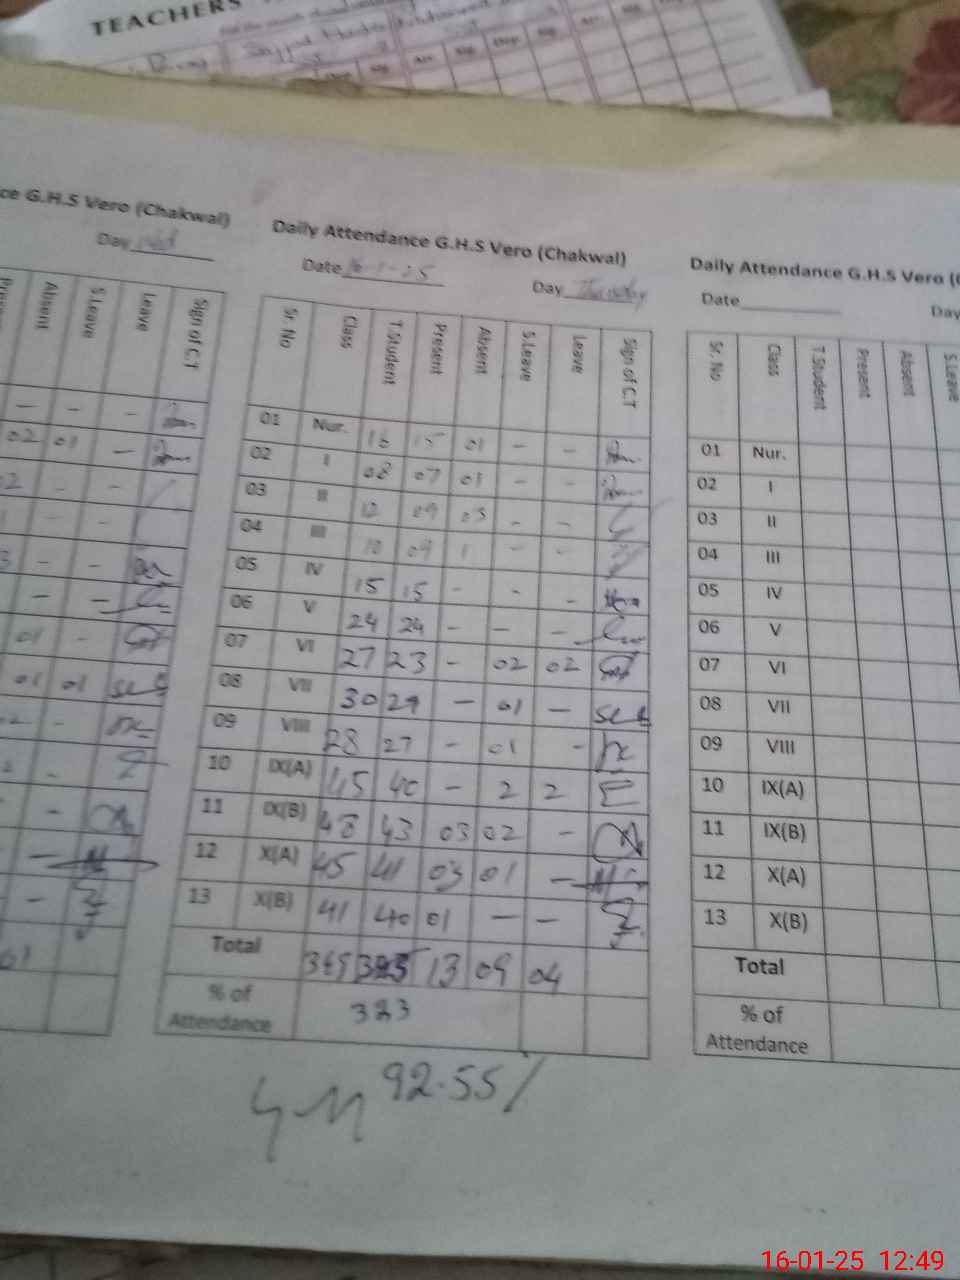 TEACHERS
ce G.H.S Vero (Chakwal)
Day
Absent S.Leave Leave Sign of C.T
- - -
02 01 -
02 - -
- -
3 - -
- -
01 -
01 01
-
2 -
-
-
-
01
Daily Attendance G.H.S Vero (Chakwal)
Date 16-1-25 Day Thursday
Sr. No Class T.Student Present Absent S.Leave Leave Sign of C.T
01 Nur. 16 15 01 - -
02 I 08 07 01 - -
03 II 12 09 03 - -
04 III 10 09 1 - -
05 IV 15 15 - - -
06 V 24 24 - - -
07 VI 27 23 - 02 02
08 VII 30 29 - 01 -
09 VIII 28 27 - 01 -
10 IX(A) 45 40 - 2 2
11 IX(B) 48 43 03 02 -
12 X(A) 45 41 03 01 -
13 X(B) 41 40 01 - -
Total 13 09 04
% of Attendance 323
92.55%
Daily Attendance G.H.S Vero (
Date Day
Sr. No Class T.Student Present Absent S.Leave
01 Nur.
02 I
03 II
04 III
05 IV
06 V
07 VI
08 VII
09 VIII
10 IX(A)
11 IX(B)
12 X(A)
13 X(B)
Total
% of
Attendance
16-01-25 12:49